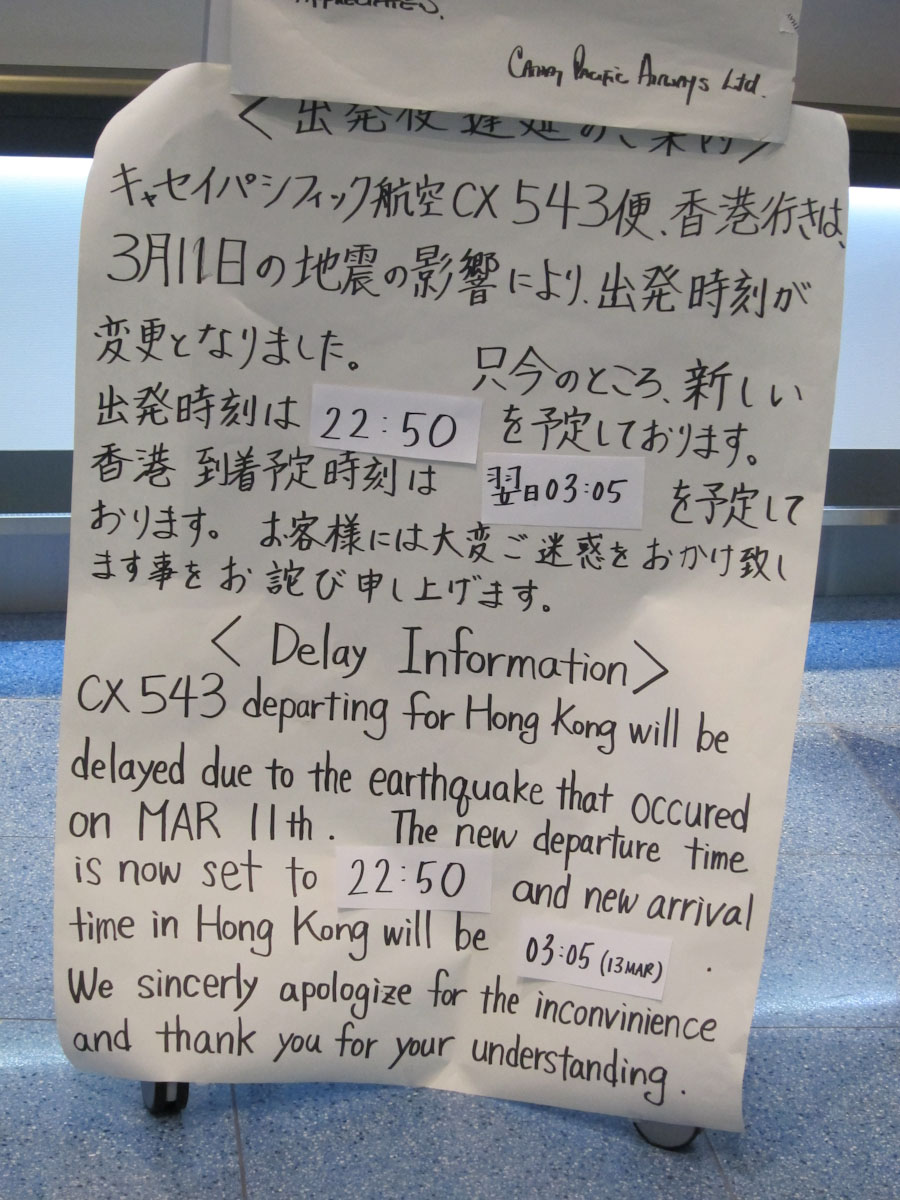 APPRECIATED.
Cathay Pacific Airways Ltd.
<出発便遅延のご案内>
キャセイパシフィック航空CX543便、香港行きは、
3月11日の地震の影響により、出発時刻が
変更となりました。 只今のところ、新しい
出発時刻は 22:50 を予定しております。
香港 到着予定時刻は 翌日03:05 を予定して
おります。 お客様には大変ご迷惑をおかけ致し
ます事をお詫び申し上げます。
< Delay Information >
CX543 departing for Hong Kong will be
delayed due to the earthquake that occured
on MAR 11th. The new departure time
is now set to 22:50 and new arrival
time in Hong Kong will be 03:05 (13MAR) .
We sincerly apologize for the inconvinience
and thank you for your understanding.